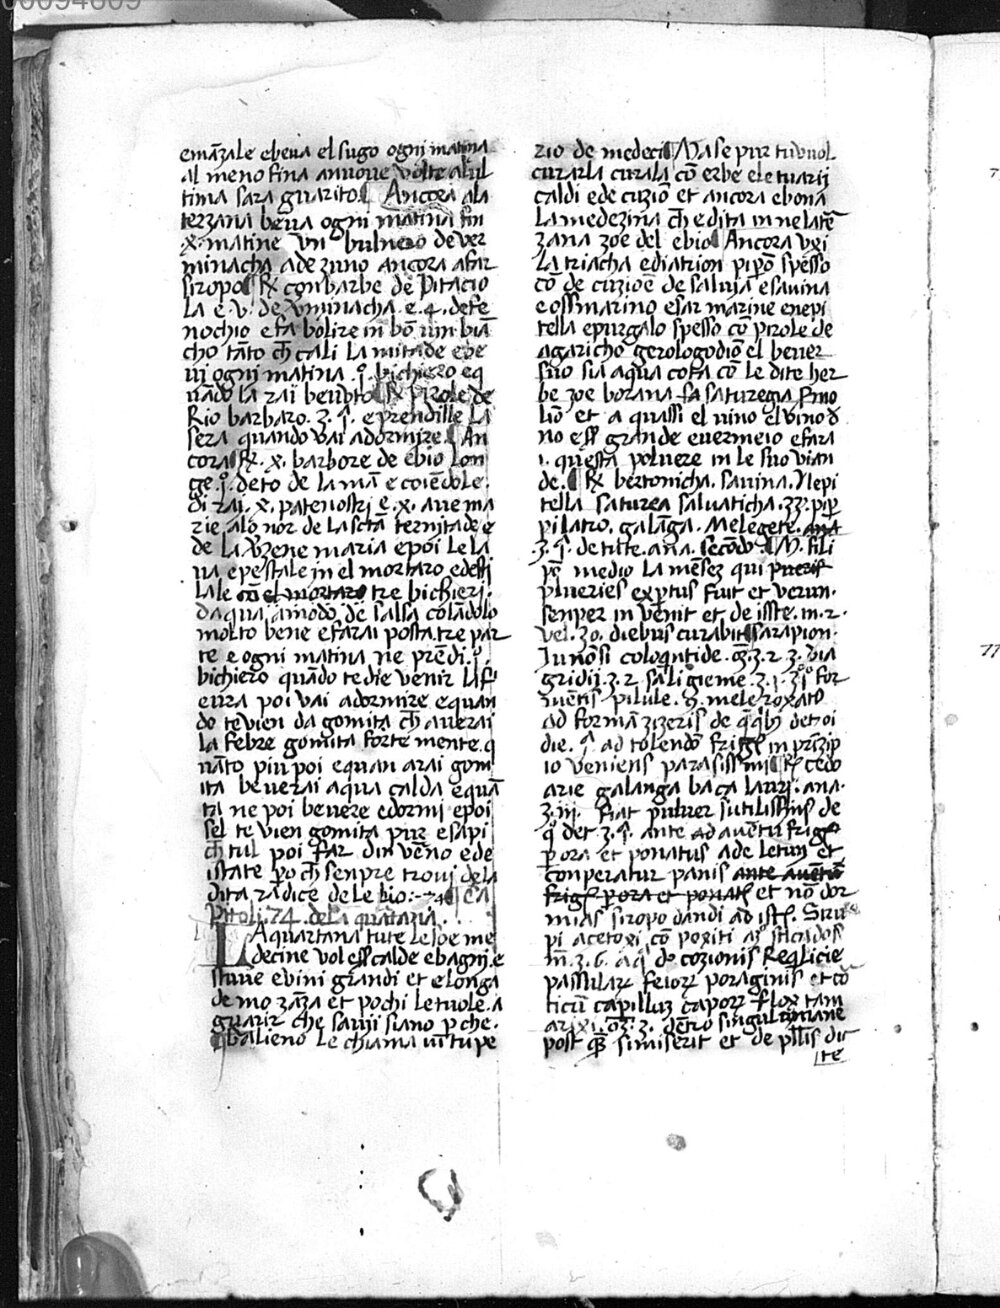 emāzale e beva el sugo ogni matina
al meno fina a nuove volte a lul
tima sara guarito ¶ Ancora a la
terzana beva ogni matina fin
.x. matine un de ver
minacha a dezuno ancora a far
siropo ¶ ℞ con barbe de Pitacio
la e .v. de vminacha .e. 4. de fe
nochio e fa bolire in bō vin biā
cho tāto ch̄ cali la mitade e be
vi ogni matina .j. bichiero e q
uādo la rai bevuto ¶ ℞ pirole de
Rio barbaro. ʒ. j. e prendille la
sera quando vai a dormire ¶ An
cora ℞. x. barbore de ebio lon
ge .j. deto de la mā e coiēdole.
di rai .x. patenostri e .x. ave ma
rie a lo nor de la scta ternitade e
de la v̄zene maria e poi le la
va e pestale in el mortaro e desti
lale cū el mortaro tre bichieri.
daqua amodo de salsa colādolo
molto bene e farai posta tre par
te e ogni matina ne prēdi .j.
bichiero quādo te die venir la f
evra poi vai a dormire e quan
do te vien da gomita ch̄ averai
la febre gomita forte mente. q
uāto piu poi e quan arai gom
ita beverai aqua calda e quā
ta ne poi bevere e dormi e poi
sel te vien gomita pur e sapi
ch̄ tul poi far din vēno e de
istate po ch̄ senpre trovi de la
dita radice de lebio :~ 74 ¶ Ca
Pitoli .74. de la quartana.
LA quartana tute le soe me
decine vol ess̄ calde e bagni. e
stuve e vini grandi et e longa
de mo zāza et pochi le tuole. a
guarir che savij siano p che.
¶ balieno le chiama vitupe
rio de medeci ¶ Ma se pur tu vuol
curarla curala cō erbe eletuarij
caldi e de cuziō et ancora e bona
la medezina ch̄ e dita in ne la te
zana zoe del ebio ¶ Ancora uxi
la triacha e diatrion piperō spesso
cō de cuzioē de salvia e savina
e ossmarino e sar marine e nepi
tella e purgalo spesso cō pirole de
agaricho gerologodiō el bever
suo sia aqua cota cō le dite her
be zoe borana fa saturegia fino
liō et a quassi el vino el vino d̄
no ess̄ grande e vermeio e fara
i. questa polvere in le suo vian
de. ¶ ℞ bertonicha. savina. Nepi
tella saturea salvaticha .ʒʒ. pip
pilatro. galāga. melegete. ana
.ʒ. j. de tute. ana. secōdo. ¶ M. fili
pō medio la mēsez qui pueris
plueries exptus fuit et verun.
senper invēnit et de isste. in .2.
vel .30. diebus curabit ¶ Sarapion.
Junōsi coloqutide. ʒ. 2 ʒ. dia
gridij. ʒ. 2 sali gieme. ʒ. j. for
mētis pilule. mele roxato
ad formā zizeris de
die. j. ad tolendō in prīzip
io veniens parasissmi ¶ ℞ cedo
arie galanga baca lauri. ana.
ʒ. iij. fiat pulver sutilissīs de
q̄ det. ʒ. j. ante ad avētu frig
p ora et ponatus ad eletun et
conperatur panis ante avētū
frig. p ora et ponatr et nō dor
mias siropo dandi ad istr. Siru
pi acetoxi cō poxiti sticados
an̄. ʒ. 6. aq̄ do cozionis Reqlicie
passular feior poraginis et cō
ticū capilluz capor flor tam
arixi. ʒ. 3. dētro singul
post q̄ simiserit et de pllis dic
te